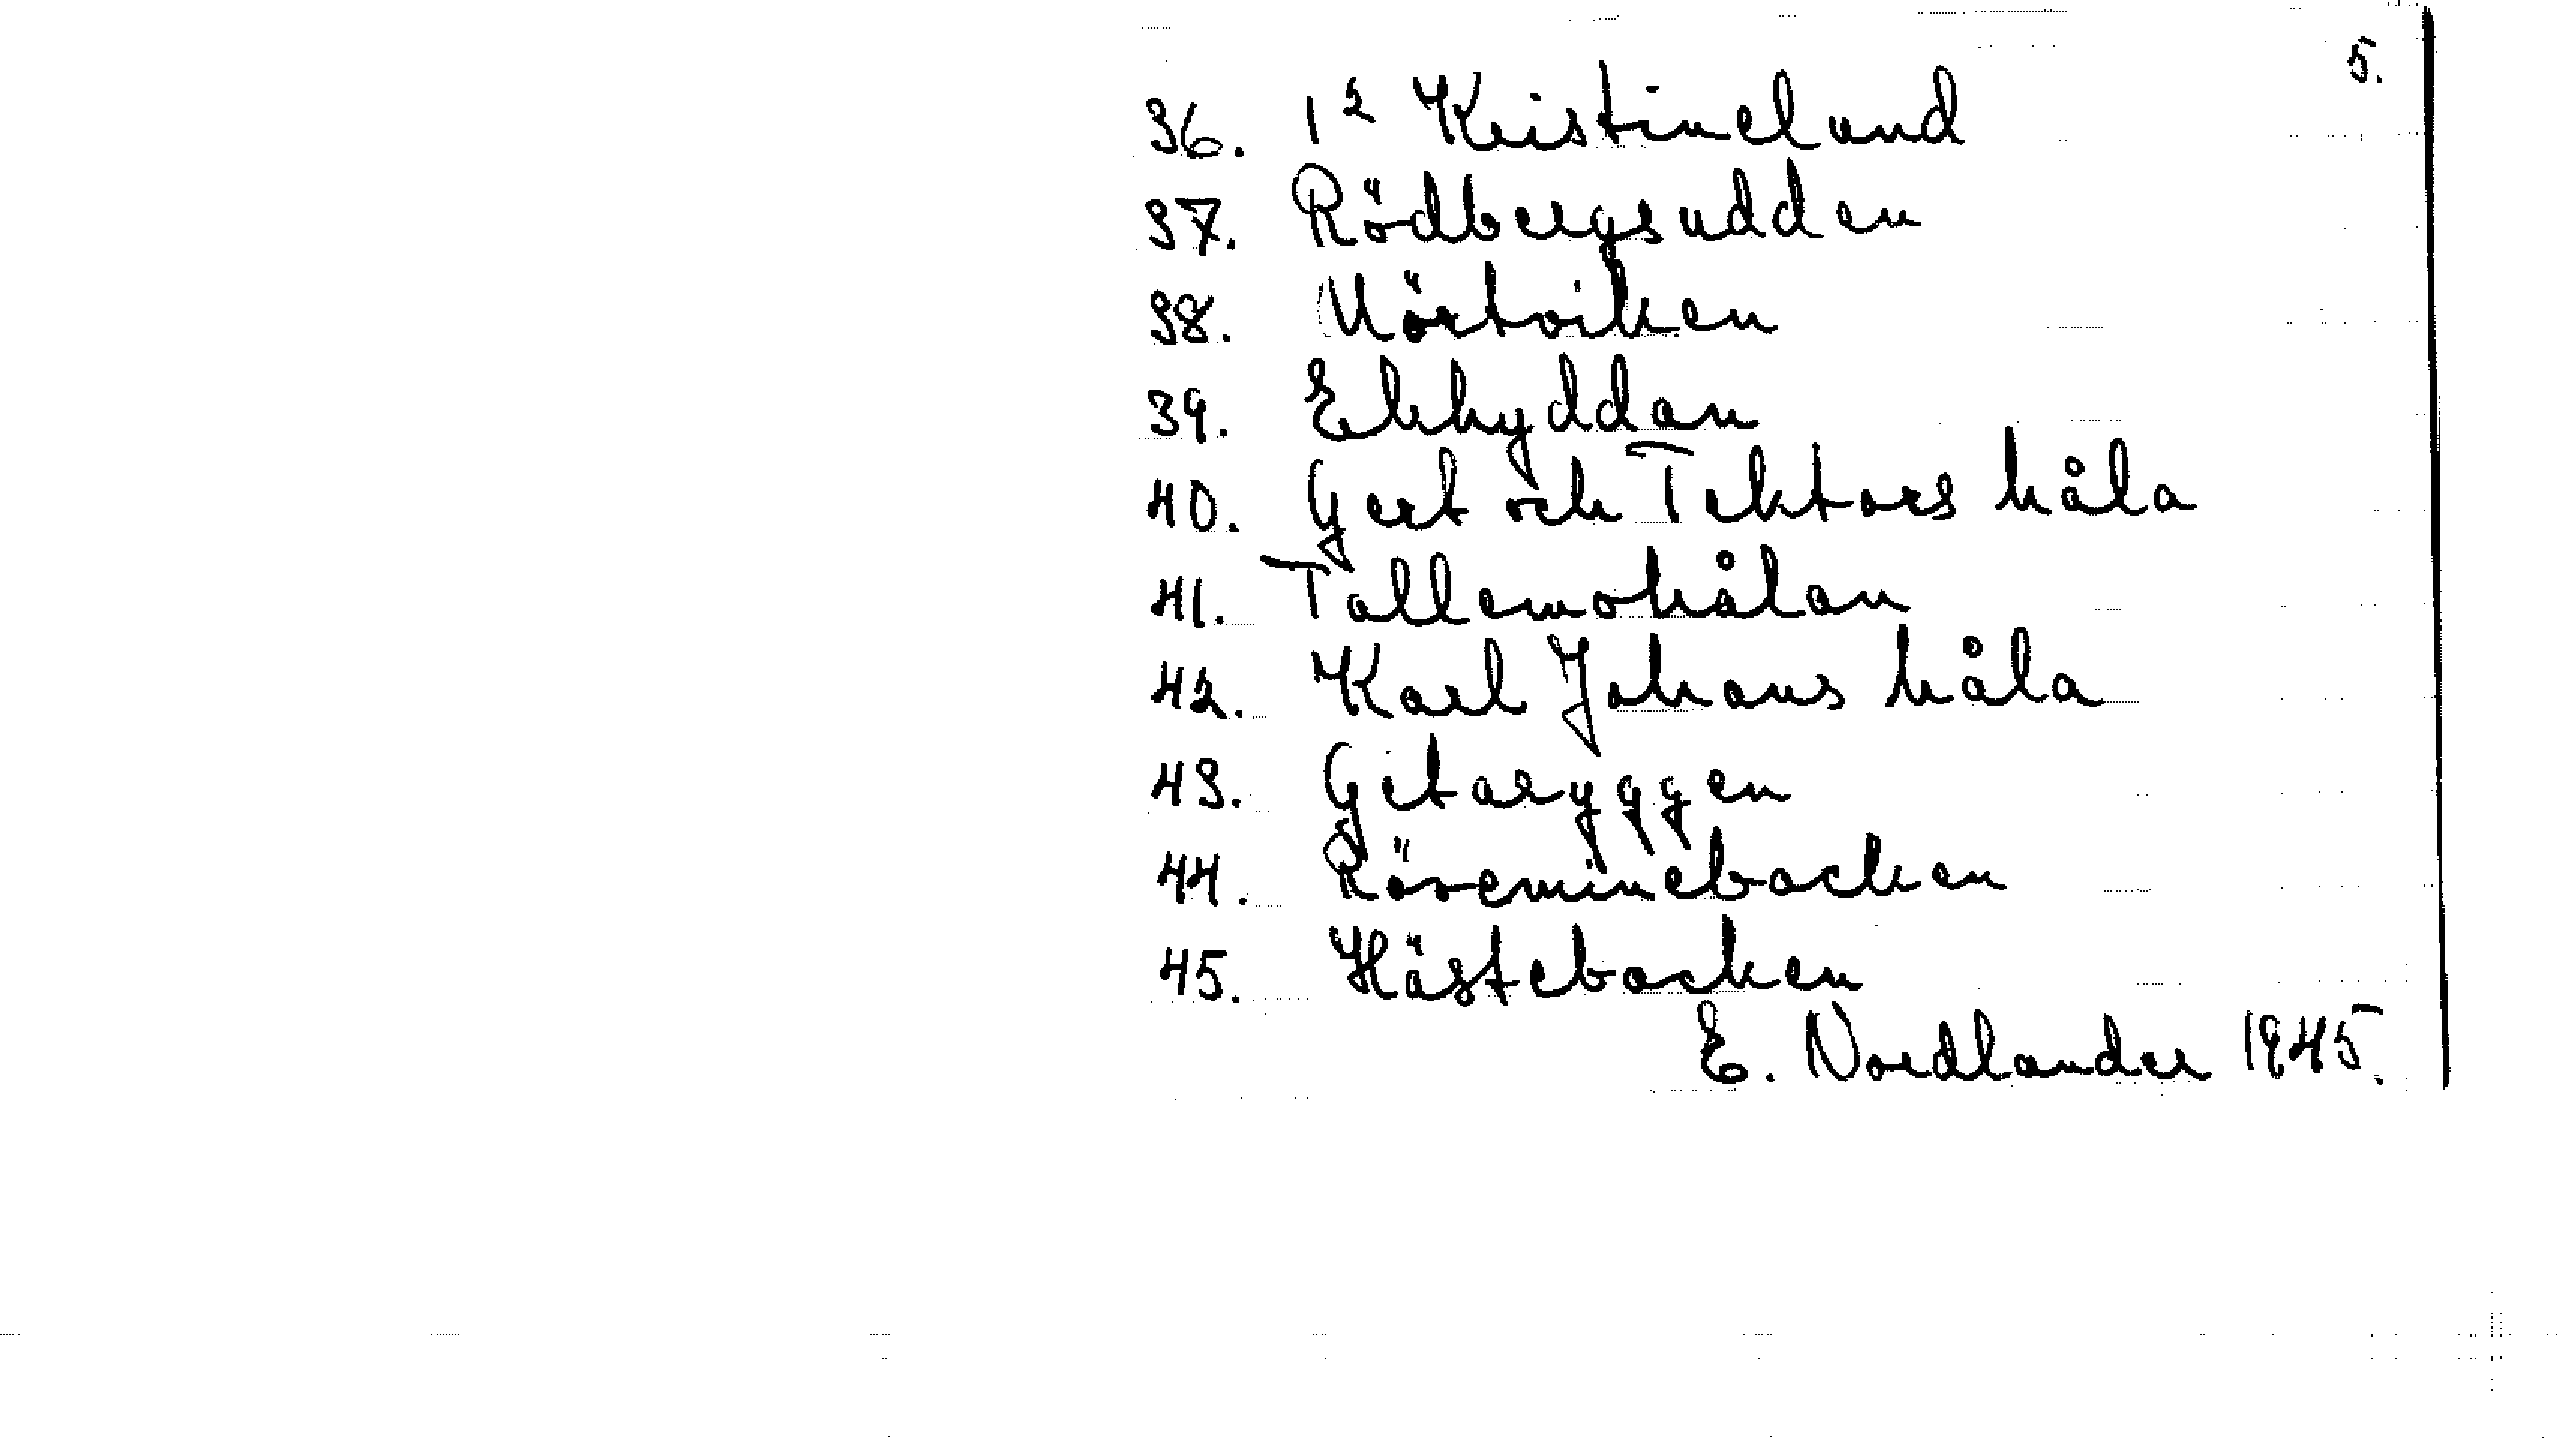 5.
36. 1² Kristinelund
37. Rödbergsudden
38. Mörtviken
39. Ekhyddan
40. Gert och Tektors håla
41. Tallemohålan
42. Karl Johans håla
43. Getaryggen
44. Röseminebacken
45. Hästebacken
E. Nordlander 1945.